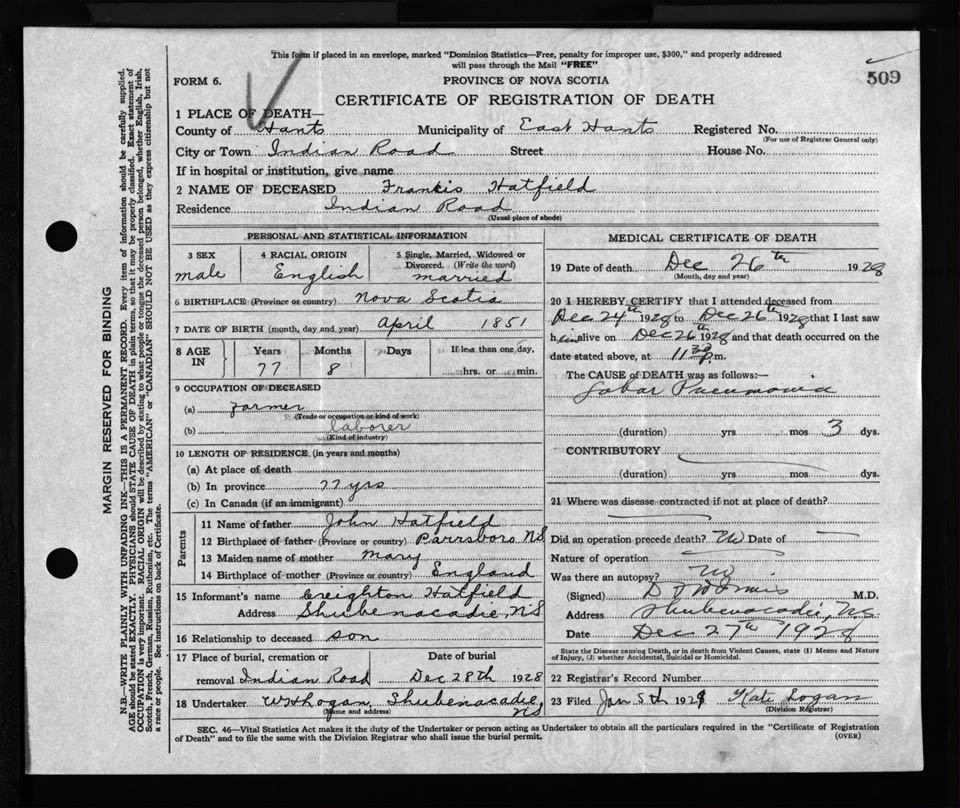 This form if placed in an envelope, marked "Dominion Statistics—Free, penalty for improper use, $300," and properly addressed
will pass through the Mail "FREE"
509
FORM 6.
PROVINCE OF NOVA SCOTIA
CERTIFICATE OF REGISTRATION OF DEATH
1 PLACE OF DEATH—
County of Hants Municipality of East Hants Registered No.
(For use of Registrar General only)
City or Town Indian Road Street House No.
If in hospital or institution, give name
2 NAME OF DECEASED Francis Hatfield
Residence Indian Road
(Usual place of abode)
PERSONAL AND STATISTICAL INFORMATION
3 SEX 4 RACIAL ORIGIN 5 Single, Married, Widowed or
Divorced. (Write the word)
male English married
6 BIRTHPLACE (Province or country) Nova Scotia
7 DATE OF BIRTH (month, day and year) April 1851
8 AGE IN Years Months Days If less than one day,
77 8 hrs. or min.
9 OCCUPATION OF DECEASED
(a) farmer
(Trade or occupation or kind of work)
(b) laborer
(Kind of industry)
10 LENGTH OF RESIDENCE (in years and months)
(a) At place of death
(b) In province 77 yrs
(c) In Canada (if an immigrant)
Parents
11 Name of father John Hatfield
12 Birthplace of father (Province or country) Parrsboro NS
13 Maiden name of mother Mary
14 Birthplace of mother (Province or country) England
15 Informant's name Creighton Hatfield
Address Shubenacadie, NS
16 Relationship to deceased son
17 Place of burial, cremation or Date of burial
removal Indian Road Dec 28th 1928
18 Undertaker Shubenacadie
(Name and address) NS
MEDICAL CERTIFICATE OF DEATH
19 Date of death Dec 26th 1928
(Month, day and year)
20 I HEREBY CERTIFY that I attended deceased from
Dec 24th 1928 to Dec 26th 1928 that I last saw
him alive on Dec 26th 1928 and that death occurred on the
date stated above, at 11.30 p.m.
The CAUSE of DEATH was as follows:—
Lobar Pneumonia
(duration) yrs mos 3 dys.
CONTRIBUTORY
(duration) yrs mos dys.
21 Where was disease contracted if not at place of death?
Did an operation precede death? No Date of
Nature of operation
Was there an autopsy? No
(Signed) M.D.
Address Shubenacadie, NS
Date Dec 27th 1928
State the Disease causing Death, or in death from Violent Causes, state (1) Means and Nature
of Injury, (2) whether Accidental, Suicidal or Homicidal.
22 Registrar's Record Number
23 Filed Jan 5th 1929 Kate Logan
(Division Registrar)
SEC. 46—Vital Statistics Act makes it the duty of the Undertaker or person acting as Undertaker to obtain all the particulars required in the "Certificate of Registration
of Death" and to file the same with the Division Registrar who shall issue the burial permit. (OVER)
MARGIN RESERVED FOR BINDING
N.B.—WRITE PLAINLY WITH UNFADING INK—THIS IS A PERMANENT RECORD. Every item of information should be carefully supplied.
AGE should be stated EXACTLY. PHYSICIANS should STATE CAUSE OF DEATH in plain terms, so that it may be properly classified. Exact statement of
OCCUPATION is very important. RACIAL ORIGIN will be described by stating to what people or tongue the deceased person belonged, whether English, Irish,
Scotch, French, German, Russian, Ruthenian, etc. The terms "AMERICAN" or "CANADIAN" SHOULD NOT BE USED as they express citizenship but not
a race or people. See instructions on back of Certificate.